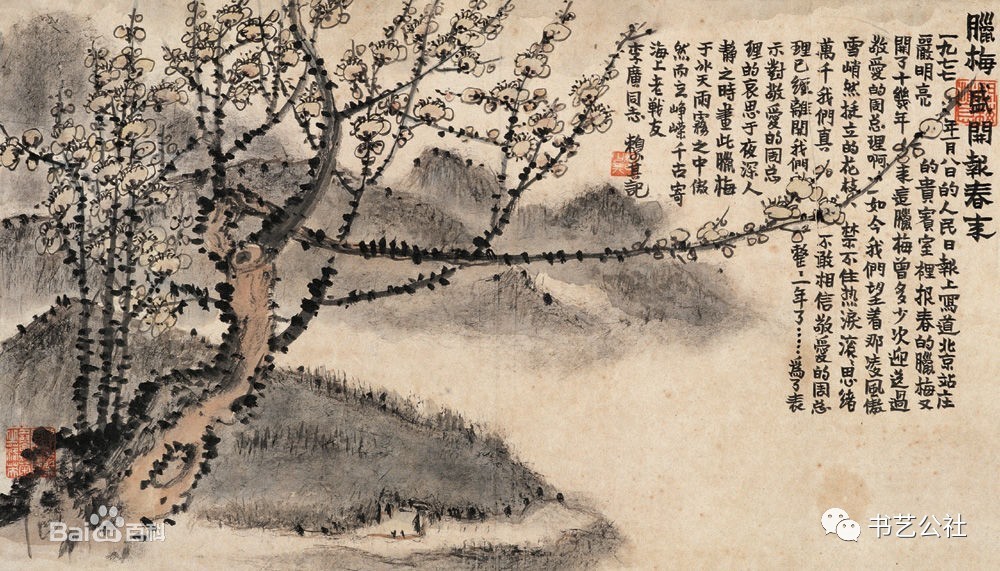 臘梅盛開報春來
一九七七年一月八日的人民日報上寫道北京站庄
嚴明亮的貴賓室裡报春的臘梅又
開了十幾年来這臘梅曾多少次迎送過
敬愛的周总理啊如今我們望着那凌風傲
雪峭然挺立的花枝禁不住热淚滚思緒
萬千我們真不敢相信敬愛的周总
理已經離開我們整一年了……爲了表
示對敬愛的周总
理的哀思于夜深人
静之時畫此臘梅
于冰天雨霧之中傲
然而立峥嶸千古寄
海上老戰友
李廣同志 賴少其記
Bai百科
书艺公社